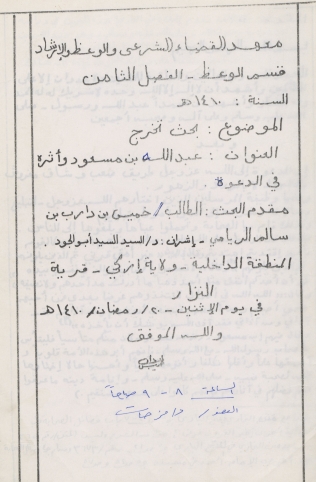 معهد القضاء الشرعي والوعظ والإرشاد
قسم الوعظ - الفصل الثامن
السنة : ١٤١٠هـ
الموضوع : بحث تخرج
العنوان : عبد الله بن مسعود وأثره
في الدعوة .
مقدم البحث : الطالب / خميس بن دارب بن
سالم الريامي - إشراف : د/ السيد السيد أبو الجود .
المنطقة الداخلية - ولاية إزكي - قرية
النزار
في يوم الإثنين - ٢٠/رمضان/١٤١٠هـ
والله الموفق
الساعة ٨ - ٩ صباحاً